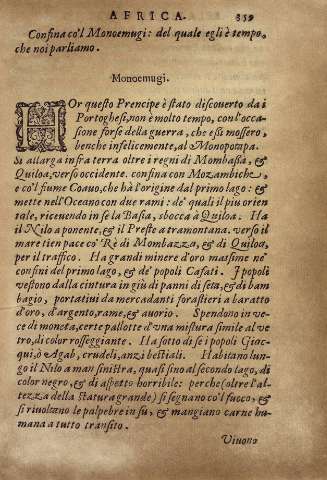 AFRICA. 839
Confina co'l Monoemugi: del quale egli è tempo,
che noi parliamo.
Monoemugi.
HOr questo Prencipe è stato discouerto da i
Portoghesi, non è molto tempo, con l'occa-
sione forse della guerra, che essi mossero,
benche infelicemente, al Monopotapa.
Si allarga infra terra oltre i regni di Mombasa, &
Quiloa, verso occidente. confina con Mozambiche,
e co'l fiume Coauo, che hà l'origine dal primo lago: &
mette nell'Oceano con due rami: de' quali il piu orien
tale, riceuendo in se la Basìa, sbocca à Quiloa. Ha
il Nilo a ponente, & il Preste a tramontana. verso il
mare tien pace co' Rè di Mombazza, & di Quiloa,
per il traffico. Ha grandi minere d'oro massime ne'
confini del primo lago, & de' popoli Cafati. I popoli
vestono dalla cintura in giù di panni di seta, & di bam
bagio, portatiui da mercadanti forastieri a baratto
d'oro, d'argento, rame, & auorio. Spendono in ve-
ce di moneta, certe pallotte d'vna mistura simile al ve
tro, di color rosseggiante. Ha sotto di se i popoli Giac-
qui, ò Agab, crudeli, anzi bestiali. Habitano lun-
go il Nilo a man sinistra, quasi sino al secondo lago, di
color negro, & di aspetto horribile: perche (oltre l'al-
tezza della statura grande) si segnano co'l fuoco, &
si riuoltano le palpebre in sù, & mangiano carne hu-
mana a tutto transito.
Viuono